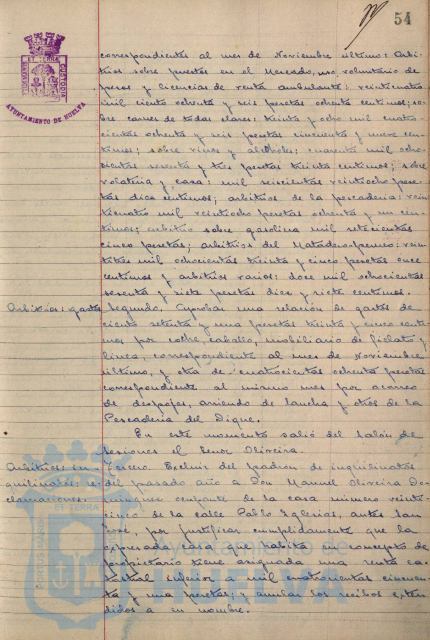 54
AYUNTAMIENTO DE HUELVA
correspondientes al mes de Noviembre último: Arbi-
trios sobre puestos en el Mercado, uso voluntario de
pesas y licencias de venta ambulante: veinticuatro
mil ciento ochenta y seis pesetas ochenta centimos; so-
bre carnes de todas clases: treinta y ocho mil cuatro-
cientas ochenta y seis pesetas cincuenta y nueve cen-
timos; sobre vinos y alcoholes: cuarenta mil ocho-
cientas sesenta y tres pesetas treinta centimos; sobre
volateria y caza: mil seiscientas veintiocho pese-
tas diez centimos; arbitrios de la pescaderia: vein-
ticuatro mil veintiocho pesetas ochenta y un cen-
timos; arbitrio sobre gasolina mil setecientas
cinco pesetas; arbitrios del Matadero-: vein-
titres mil ochocientas treinta y cinco pesetas once
centimos y arbitrios varios: doce mil ochocientas
sesenta y siete pesetas diez y siete centimos.
Arbitrios: gastos
Segundo. Aprobar una relación de gastos de
ciento setenta y una pesetas treinta y cinco centi-
mos por coche, caballo, mobiliario de fielato y
linea, correspondiente al mes de Noviembre
último, y otra de cuatrocientas ochenta pesetas
correspondiente al mismo mes por acarreo
de despojos, arriendo de lancha y otros de la
Pescaderia del Dique.
En este momento salió del Salón de
sesiones el Señor Oliveira.
Arbitrios: in-
quilinatos: re-
clamaciones.
Tercero. Excluir del padron de inquilinatos
del pasado año a Don Manuel Oliveira Do-
minguez de la casa número veinti-
cinco de la calle Pablo Iglesias, antes San
José, por justificar cumplidamente que la
expresada casa que habita en concepto de
propietario tiene asignada una renta ca-
tastral inferior a mil cuatrocientas cincuen-
ta y una pesetas; y anular los recibos exten-
didos a su nombre.
Ayuntamiento de
HUELVA